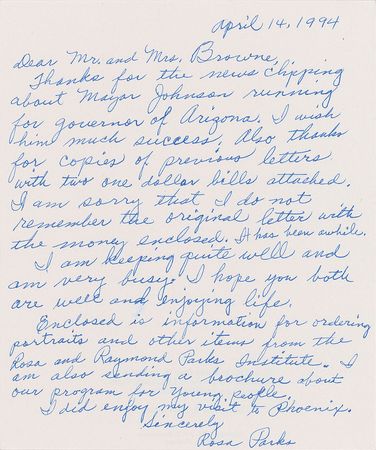 April 14, 1994
Dear Mr. and Mrs. Browne,
Thanks for the news clipping
about Mayor Johnson running
for governor of Arizona. I wish
him much success. Also thanks
for copies of previous letters
with two one dollar bills attached.
I am sorry that I do not
remember the original letter with
the money enclosed. It has been awhile.
I am keeping quite well and
am very busy. I hope you both
are well and enjoying life.
Enclosed is information for ordering
portraits and other items from the
Rosa and Raymond Parks Institute. I
am also sending a brochure about
our program for Young people.
I did enjoy my visit to Phoenix.
Sincerely
Rosa Parks